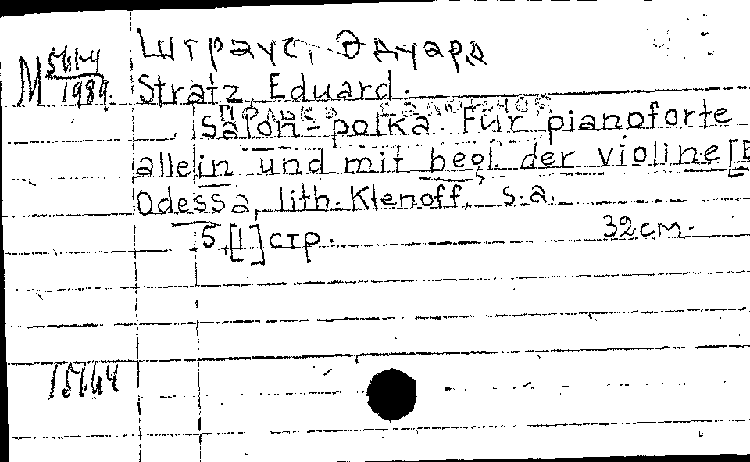 Штраус, Эдуард
М 5614/1989. Stratz, Eduard.
Salon-polka. Für pianoforte
allein und mit begl. der violine [E
Odessa, lith. Klenoff, s.a.
5, [1] стр. 32 см.